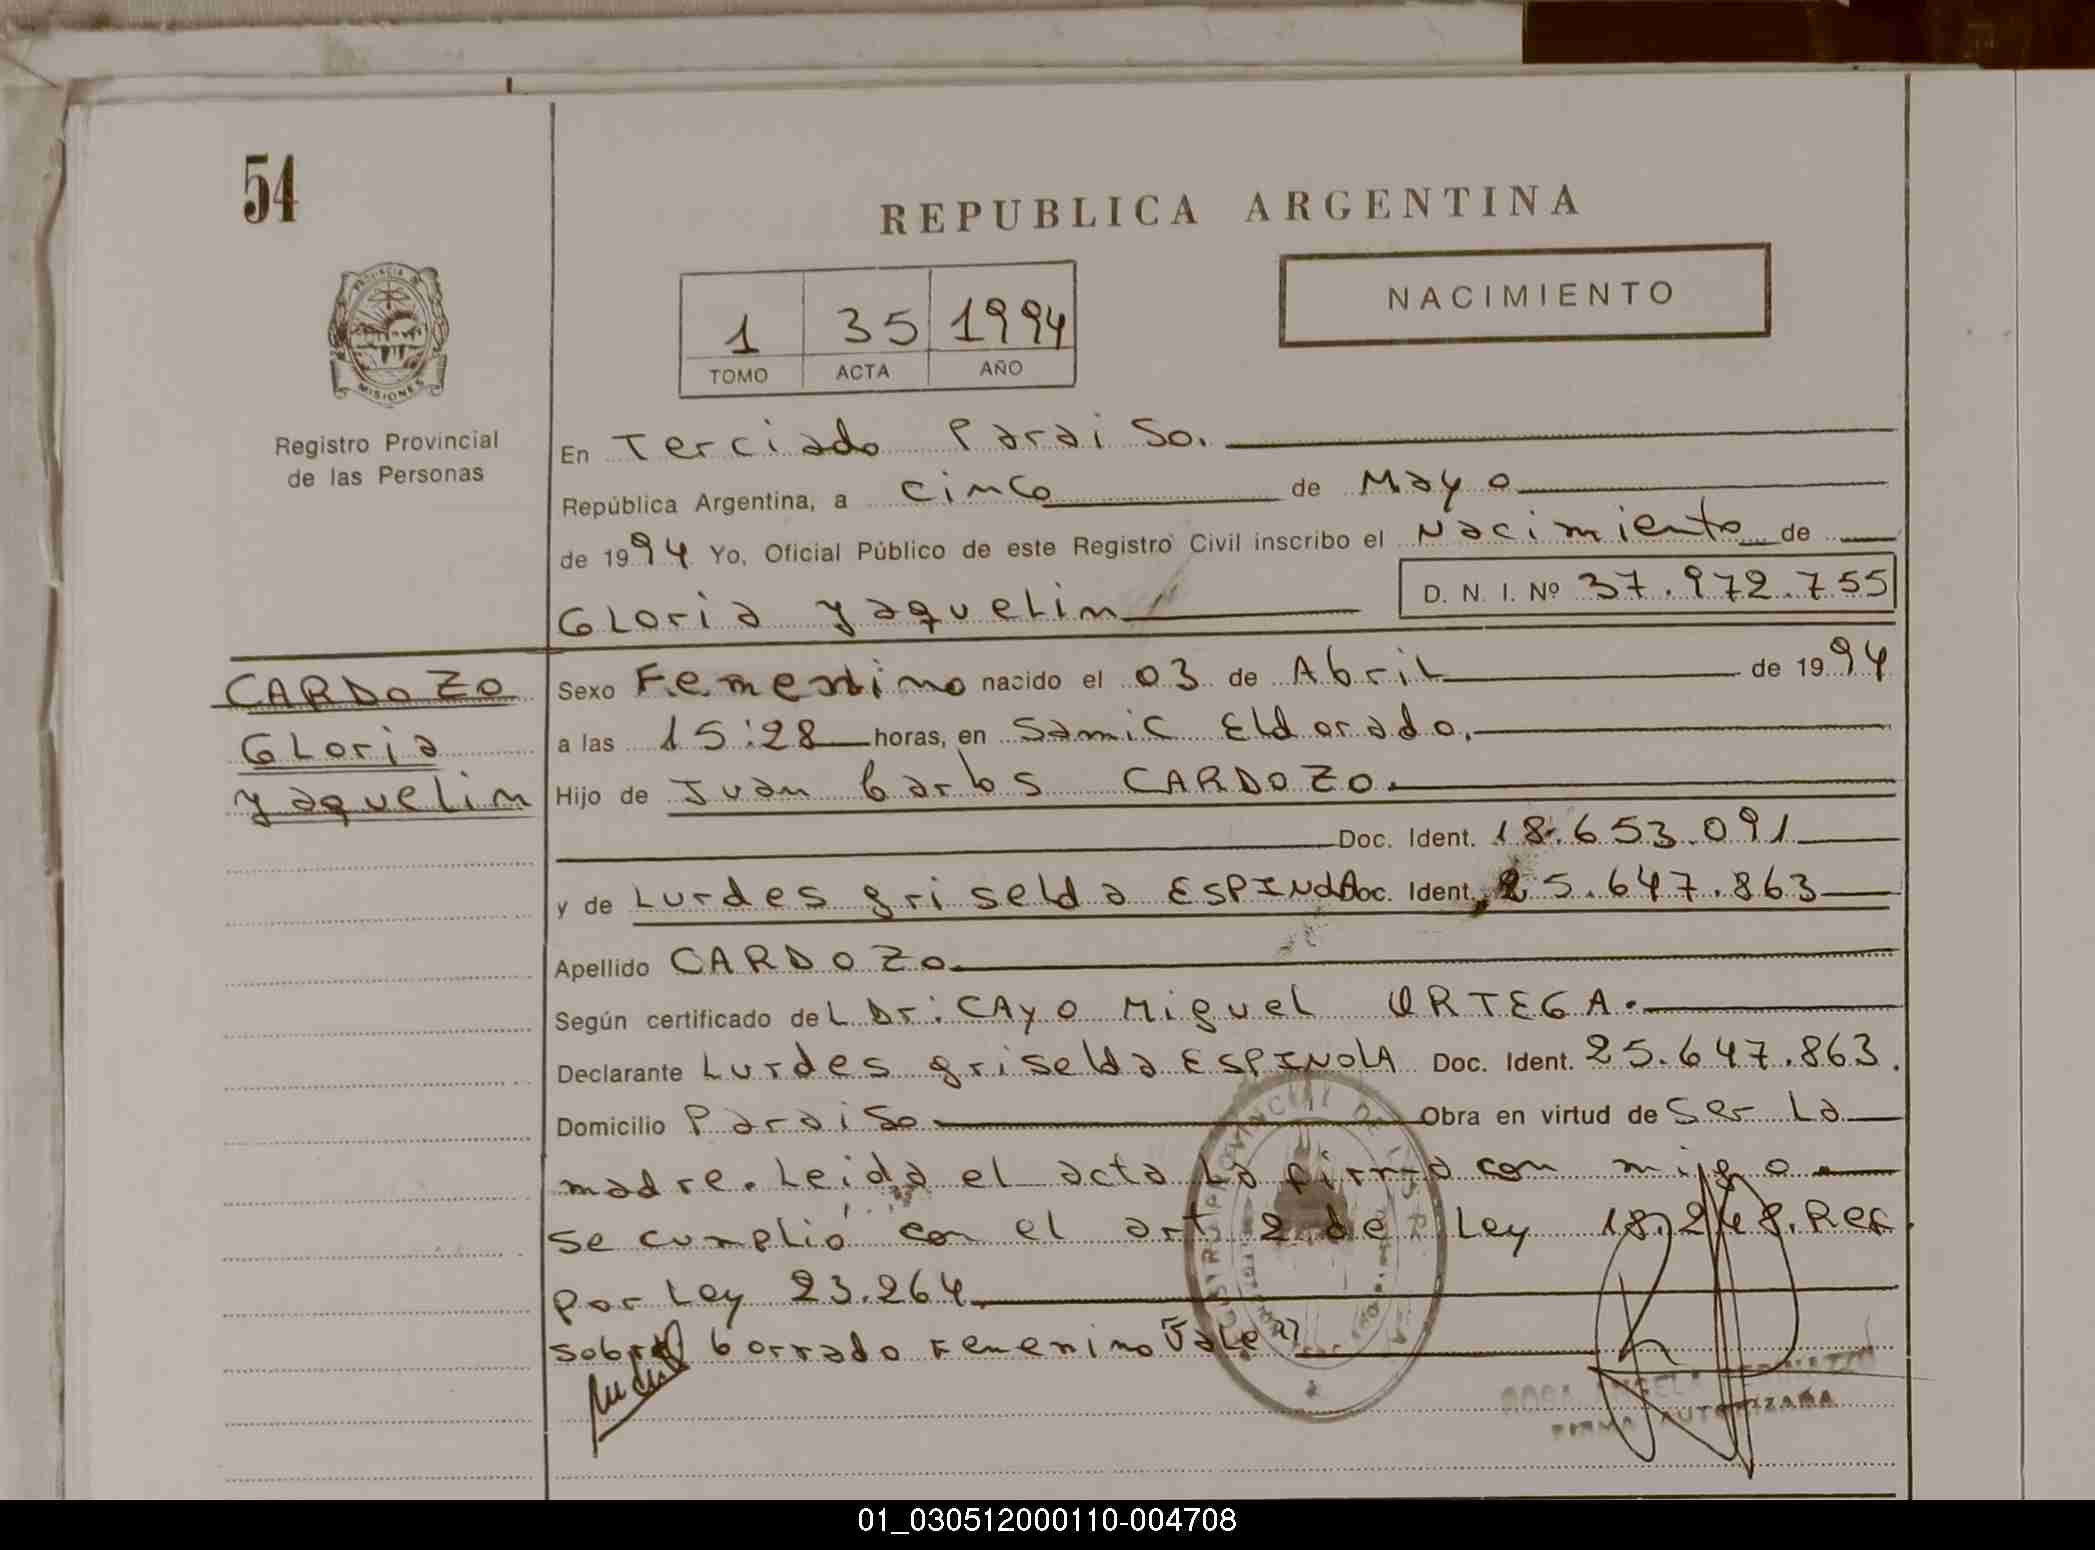 54
REPUBLICA ARGENTINA
NACIMIENTO
1 35 1994
TOMO ACTA AÑO
MISIONES
Registro Provincial
de las Personas
En Terciado Paraiso.
República Argentina, a cinco de Mayo
de 1994 Yo, Oficial Público de este Registro Civil inscribo el Nacimiento de
D. N. I. Nº 37.972.755
Gloria Yaquelin
CARDOZO
Gloria
Yaquelin
Sexo Femenino nacido el 03 de Abril de 1994
a las 15:28 horas, en Samic Eldorado.
Hijo de Juan Carlos CARDOZO.
Doc. Ident. 18.653.091
y de Lurdes griselda ESPINOLA Doc. Ident. 25.647.863
Apellido CARDOZO
Según certificado del Dr: CAyO Miguel ORTEGA.
Declarante Lurdes griselda ESPINOLA Doc. Ident. 25.647.863.
Domicilio Paraiso Obra en virtud de Ser La
madre. Leida el acta La firma con migo
se cumplió con el art 2 de Ley 18.248. Ref
por Ley 23.264
sobre borrado Femenino Vale"
FIRMA AUTORIZADA
01_030512000110-004708